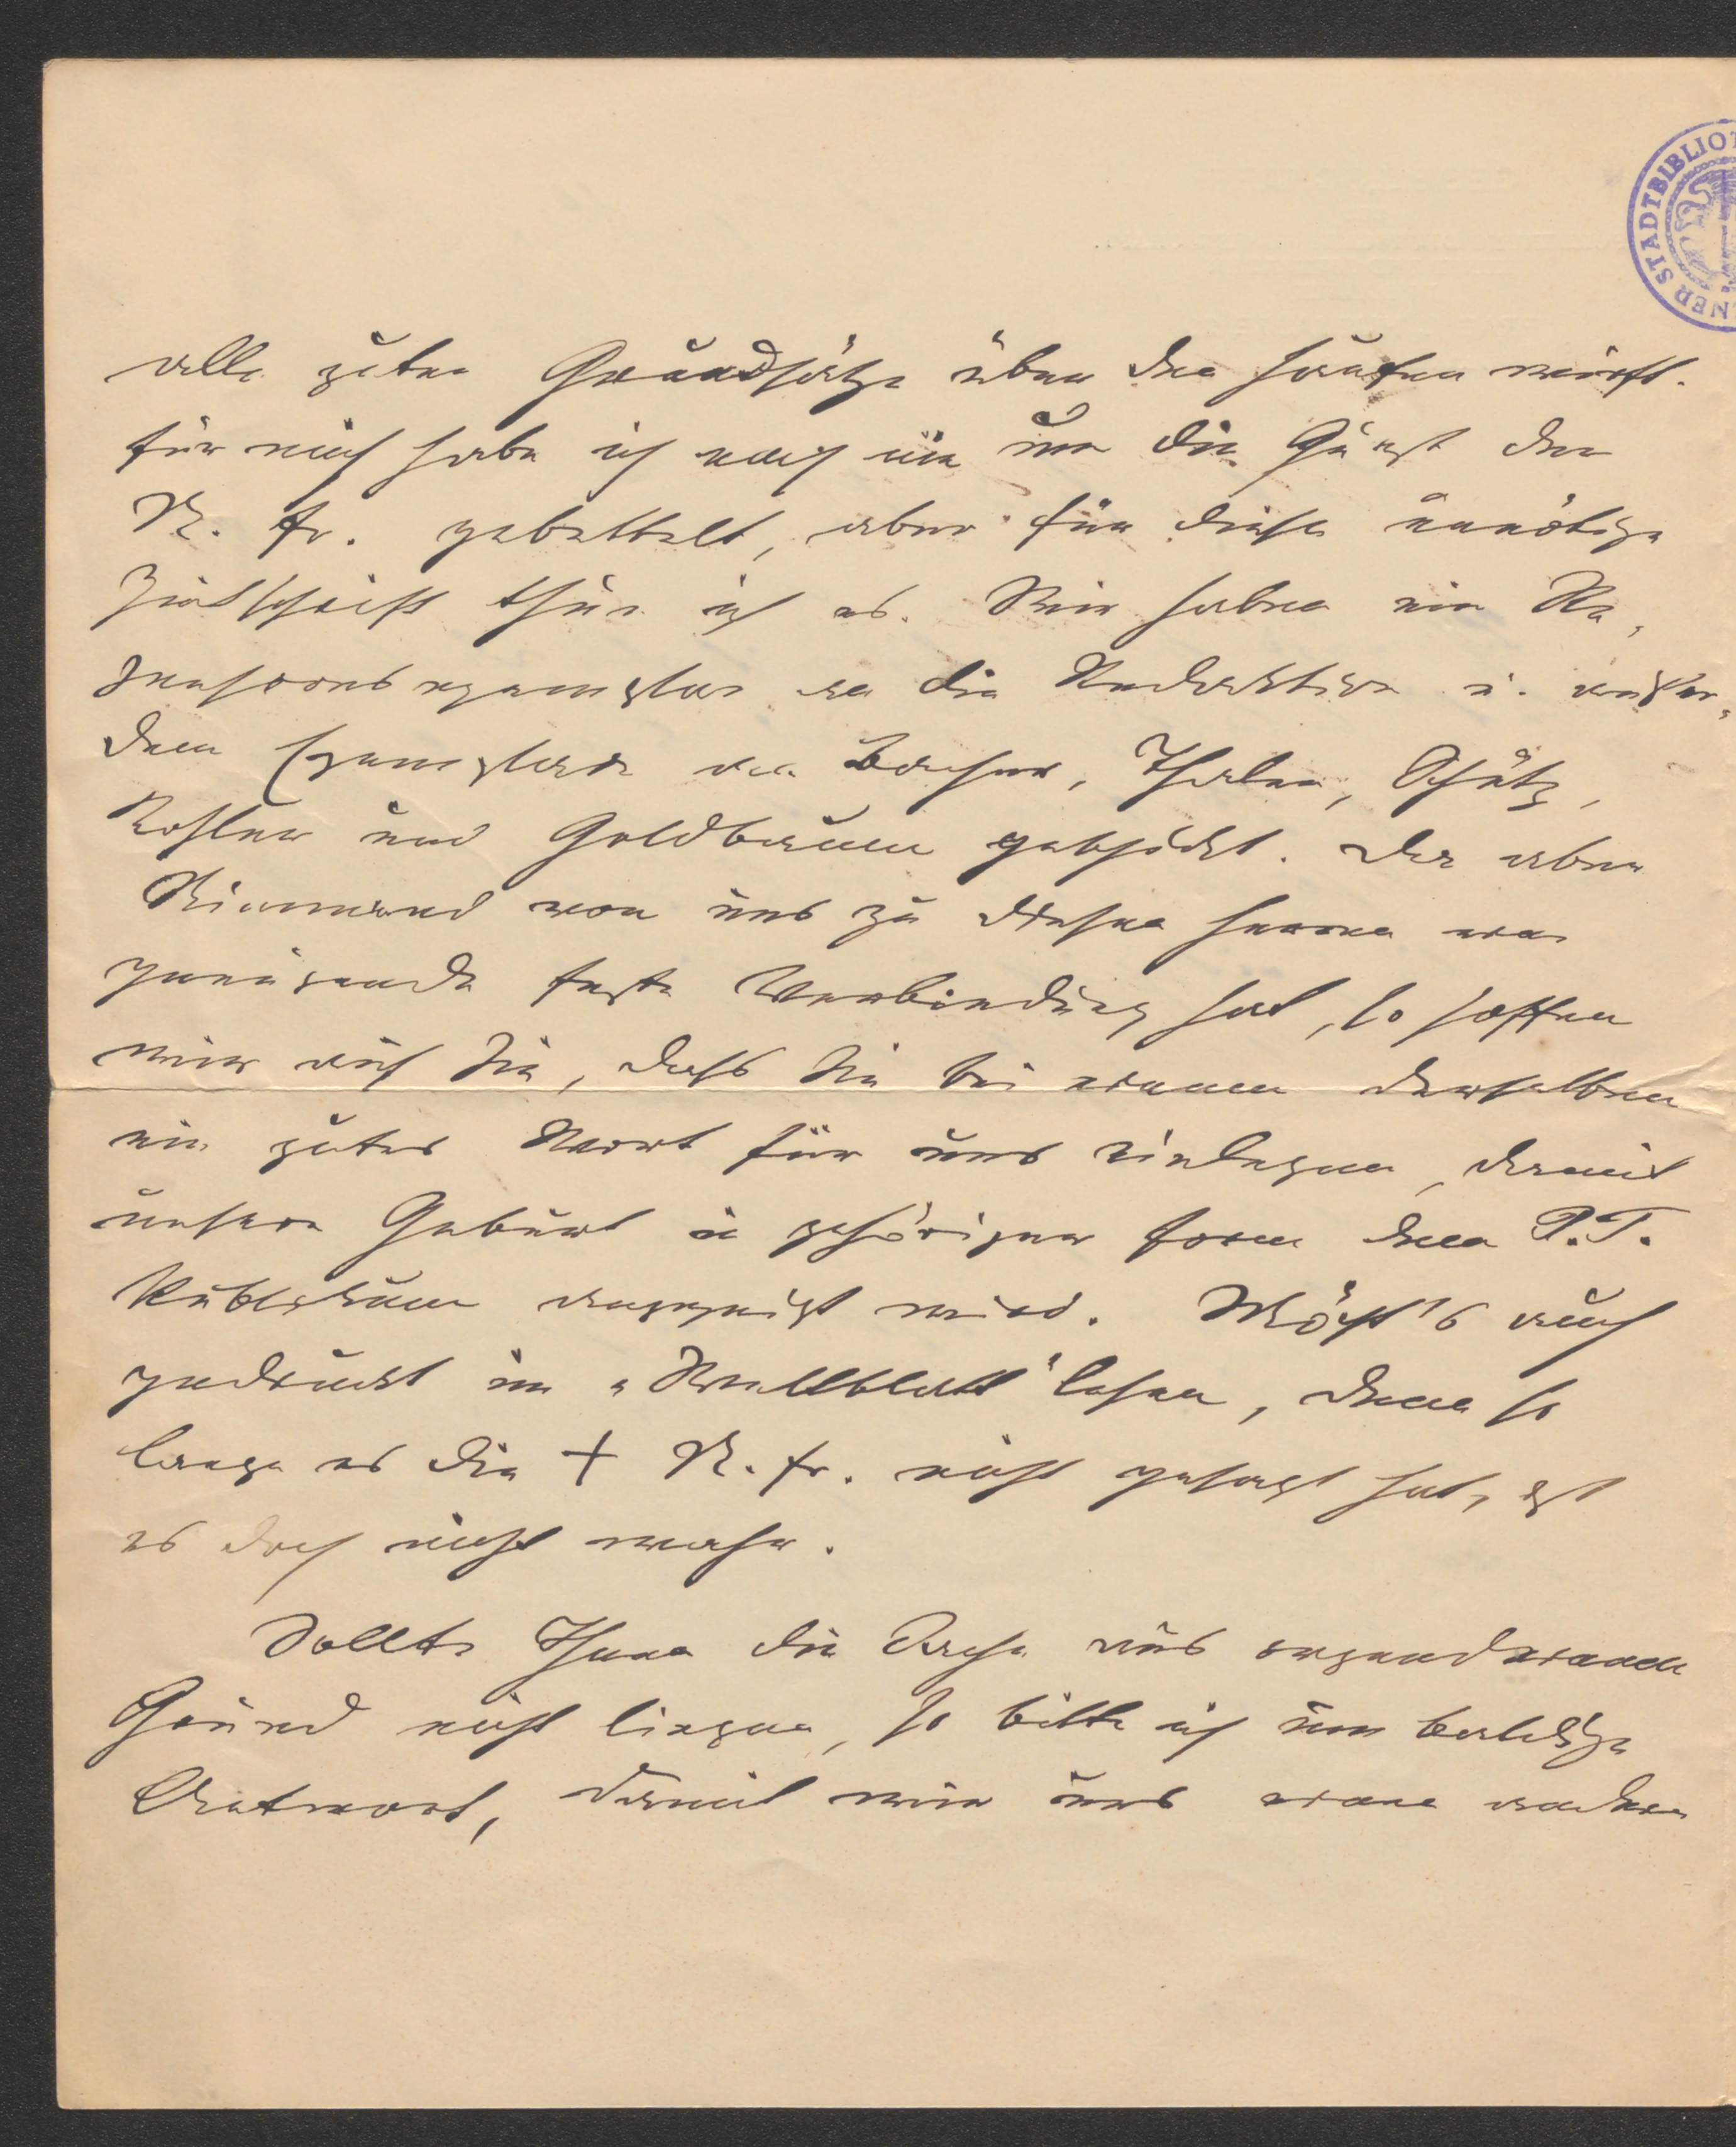 alle guten Grundsätze über den Haufen wirft.
Für mich habe ich noch nie um die Gunst der
N. Fr. gebettelt, aber für diese unnötige
Zeitschrift thue ich es. Wir haben ein Re-
zensionsexemplar an die Redaktion u. außer-
dem Exemplare an Bacher, Thaler, Schütz,
und Goldbaum geschickt. Da aber
Niemand von uns zu diesen Herren eine
genügende feste Verbindung hat, so hoffen
wir auf Sie, dass Sie bei einem derselben
ein gutes Wort für uns einlegen, damit
unsere Geburt in gehöriger Form dem P.T.
Publikum angezeigt wird. Möcht's auch
gedruckt im „Weltblatt" lesen, denn so
lange es die + N. Fr. nicht gesagt hat, ist
es doch nicht wahr.
Sollte Ihnen die Sache aus irgendeinem
Grund nicht liegen, so bitte ich um baldige
Antwort, damit wir uns einen andern
STADTBIBLIO